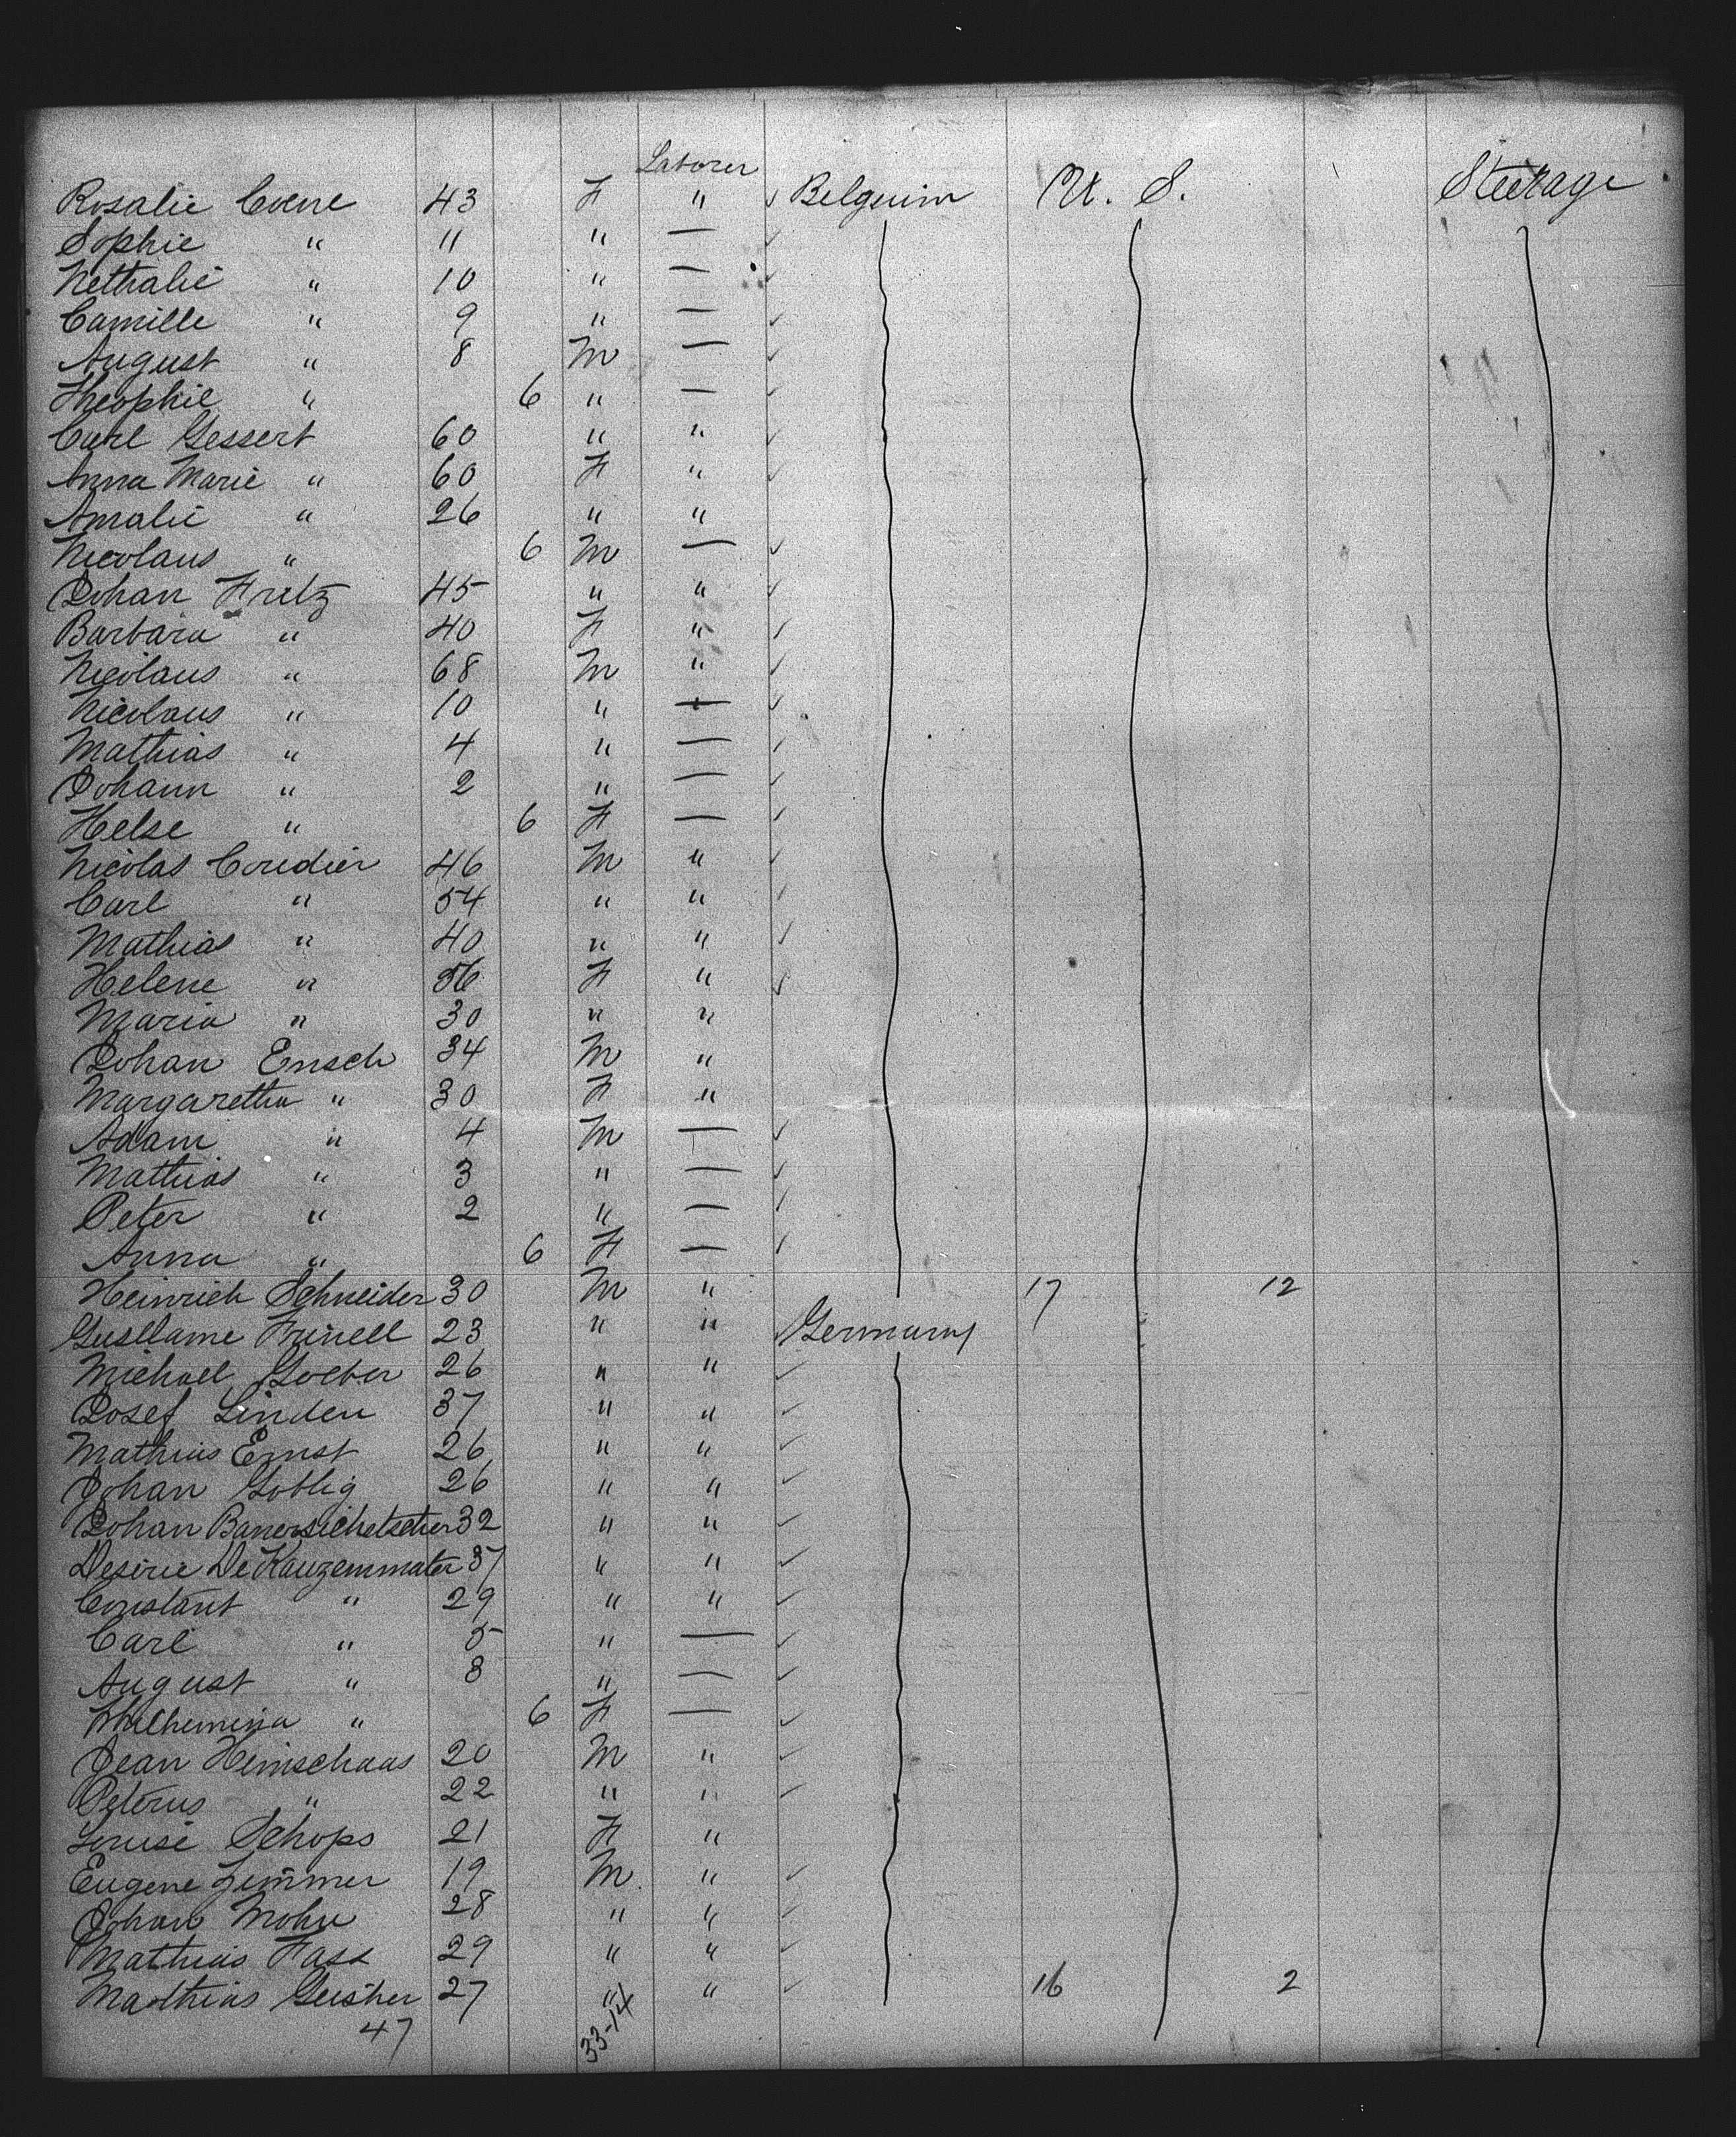 Laborer
Rosalie Coene 43 F " Belguim U. S. Steerage
Sophie " 11 " —
Nethalie " 10 " —
Camille " 9 " —
August " 8 M —
Theophil " 6 " —
Carl Gessert 60 " "
Anna Marie " 60 F "
Amalie " 26 " "
Nicolaus " 6 M —
Johan Fretz 45 " "
Barbara " 40 F "
Nicolaus " 68 M "
Nicolaus " 10 " —
Mathias " 4 " —
Johann " 2 " —
Helse " 6 F —
Nicolas Coudier 46 M "
Carl " 54 " "
Mathias " 40 " "
Helene " 56 F "
Maria " 30 " "
Johan Ensch 34 M "
Margaretha " 30 F "
Adam " 4 M —
Mathias " 3 " —
Peter " 2 " —
Anna " 6 F —
Heinrich Schneider 30 M " 17 12
Gusllame Frinell 23 " " Germany
Michael Goeber 26 " "
Josef Linden 37 " "
Mathias Ernst 26 " "
Johan Goblig 26 " "
Johan 32 " "
Desirie De Kauzemmater 37 " "
Constant " 29 " "
Carl " 5 " —
August " 8 " —
Whilhemina " 6 F —
Jean Heinschaas 20 M "
Peterus " 22 " "
Louise Schops 21 F "
Eugene Zimmer 19 M "
Johan Mohn 28 " "
Mathias Fass 29 " "
Mathias Geisher 27 " " 16 2
47 33-14